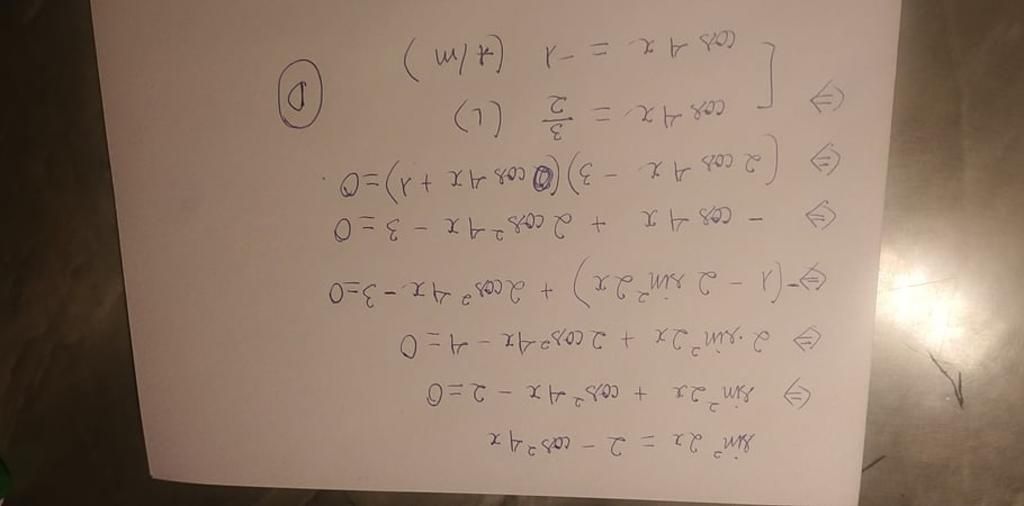 sin² 2x = 2 - cos² 4x
⇔ sin² 2x + cos² 4x - 2 = 0
⇔ 2 sin² 2x + 2 cos² 4x - 4 = 0
⇔ -(1 - 2 sin² 2x) + 2 cos² 4x - 3 = 0
⇔ - cos 4x + 2 cos² 4x - 3 = 0
⇔ (2 cos 4x - 3)(cos 4x + 1) = 0
⇔ [ cos 4x = 3/2 (L)
cos 4x = -1 (t/m)
D